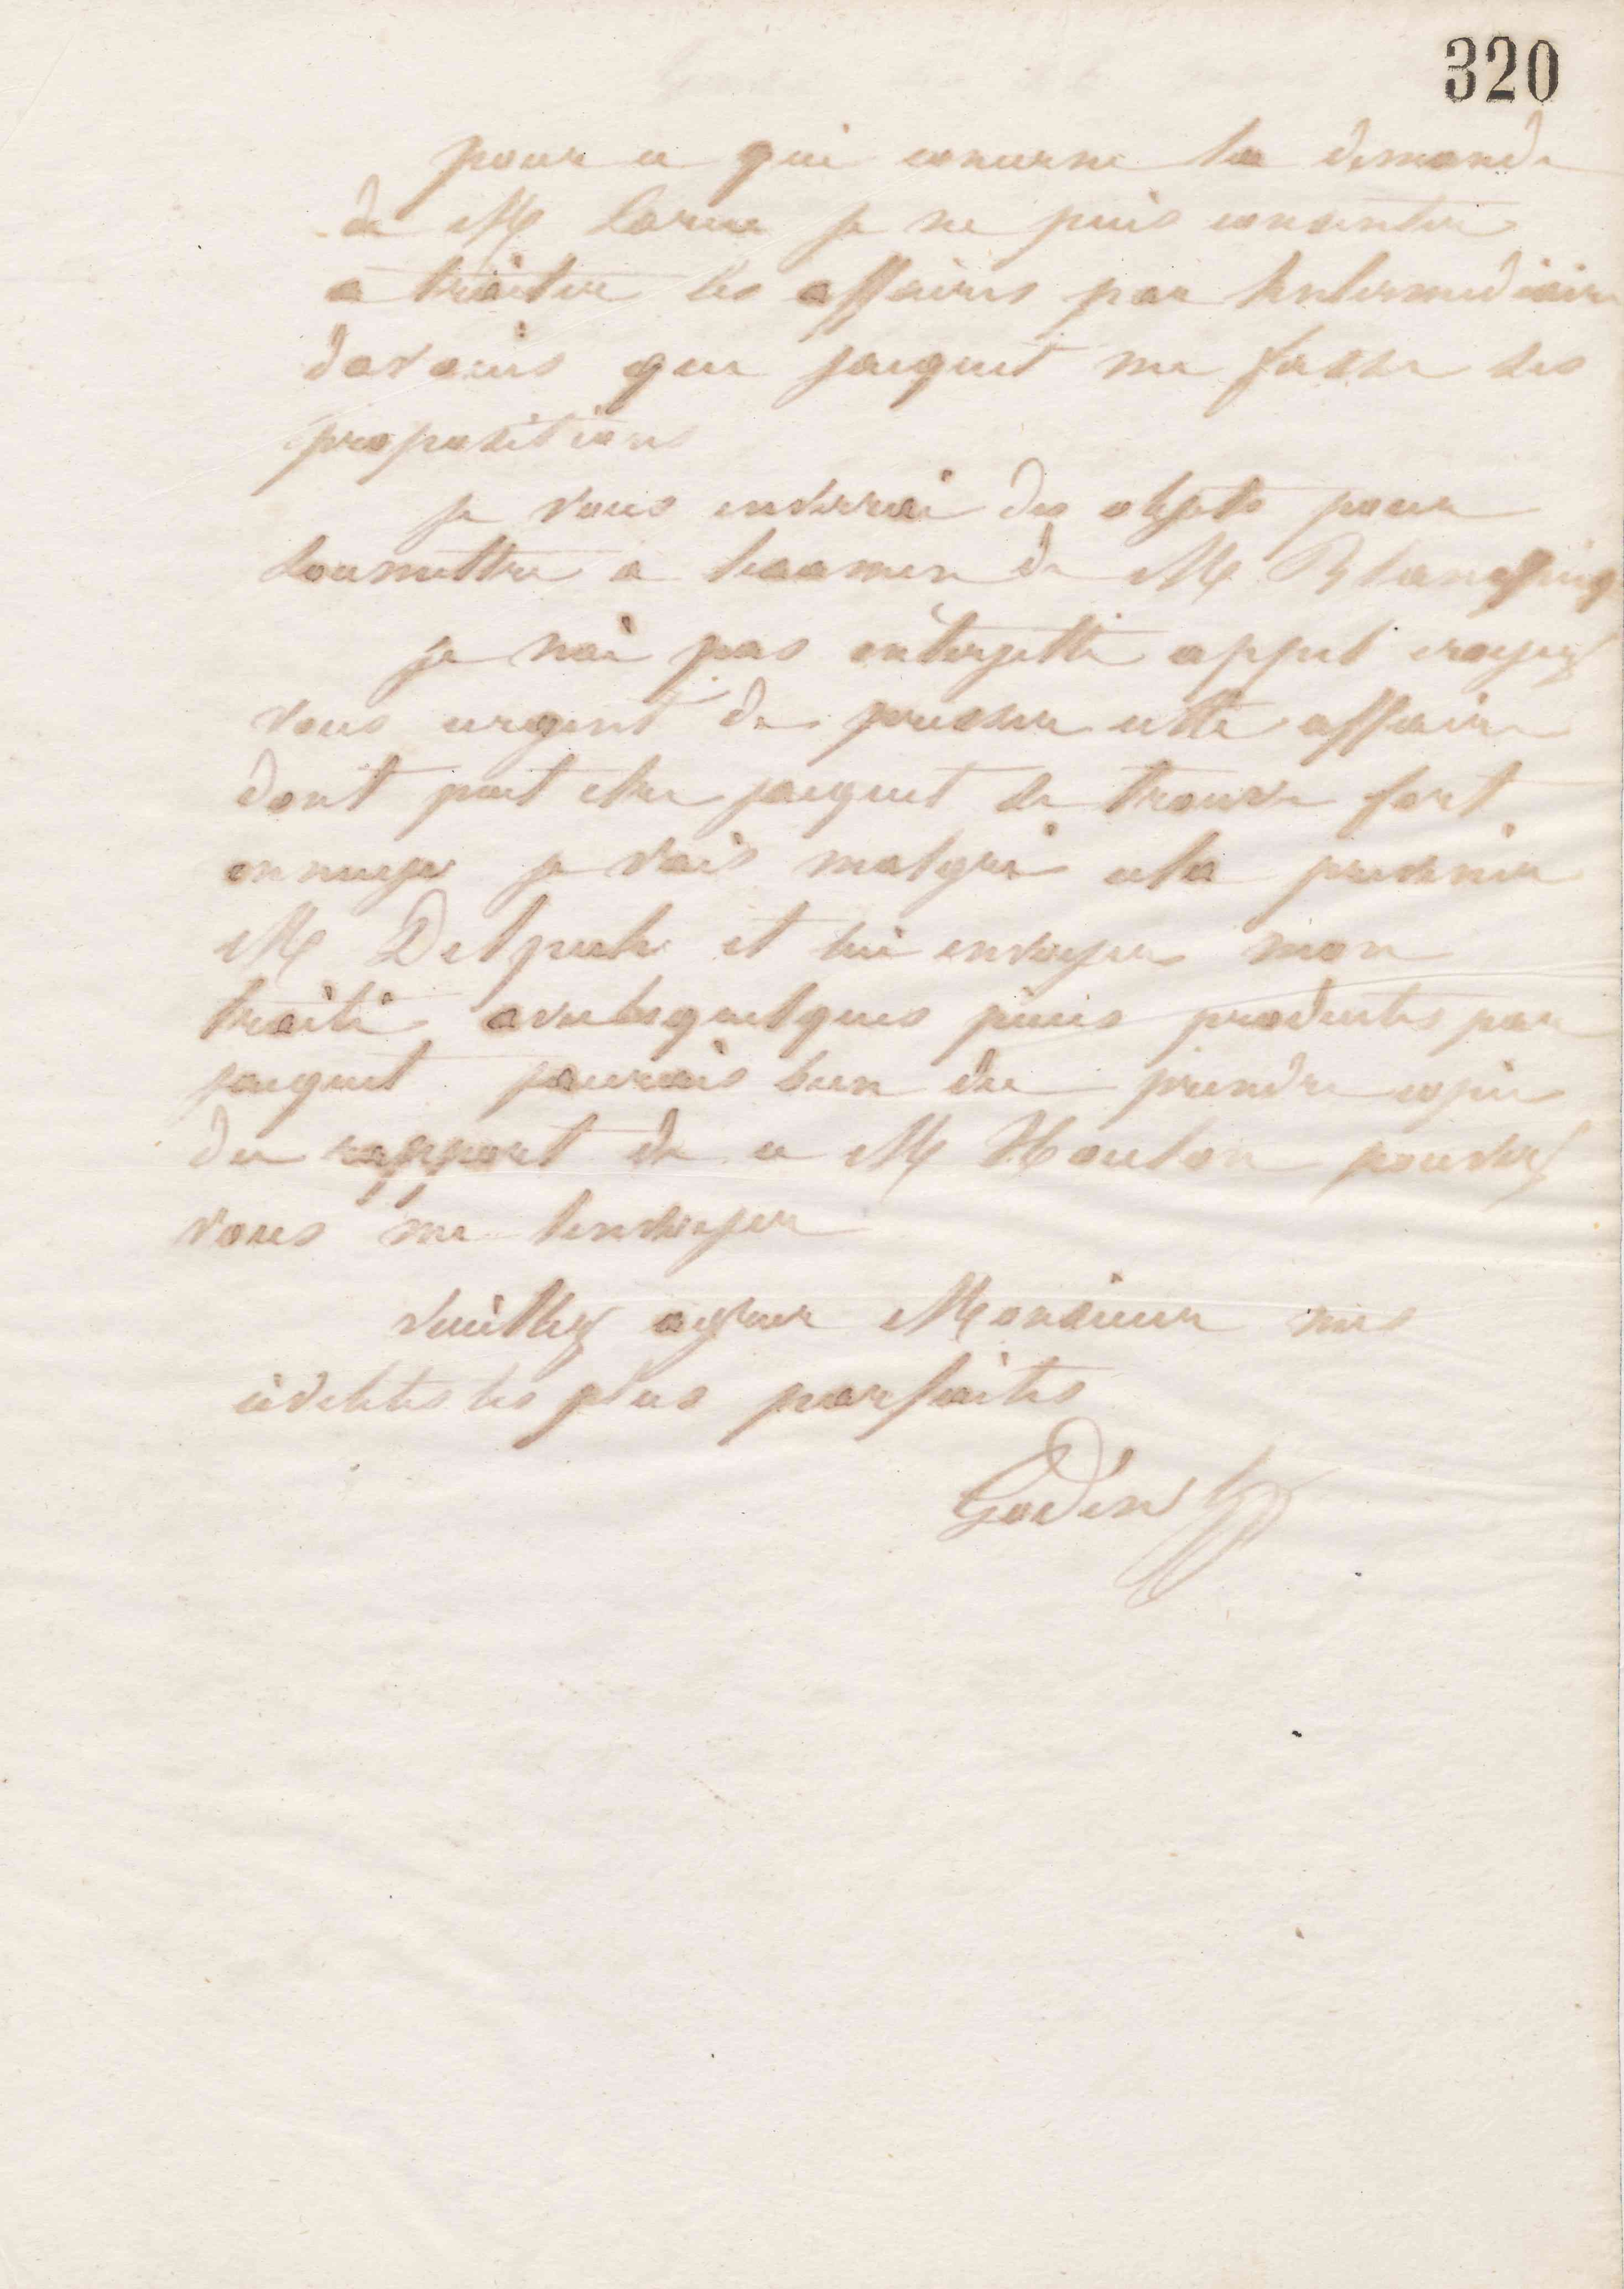 320
pour ce qui concerne la demande
de M Larue je ne puis consentir
a traiter les affaires par lintermediaire
davouis que jacquet me fasse des
propositions
je vous enverrai des objets pour
soumettre a lexamen de M
je nai pas interjetté appel croyez
vous urgent de presser cette affaire
dont peut etre jacquet se trouve fort
ennuyé je vais malgré cela prevenir
M Delpech et lui envoyer mon
traité avec les quelques pieces produites par
jacquet jaurais bien du prendre copie
du rapport de ce M Houlon pouvez
vous me lenvoyer
veuillez agreer Monsieur mes
civilités les plus parfaites
Godin